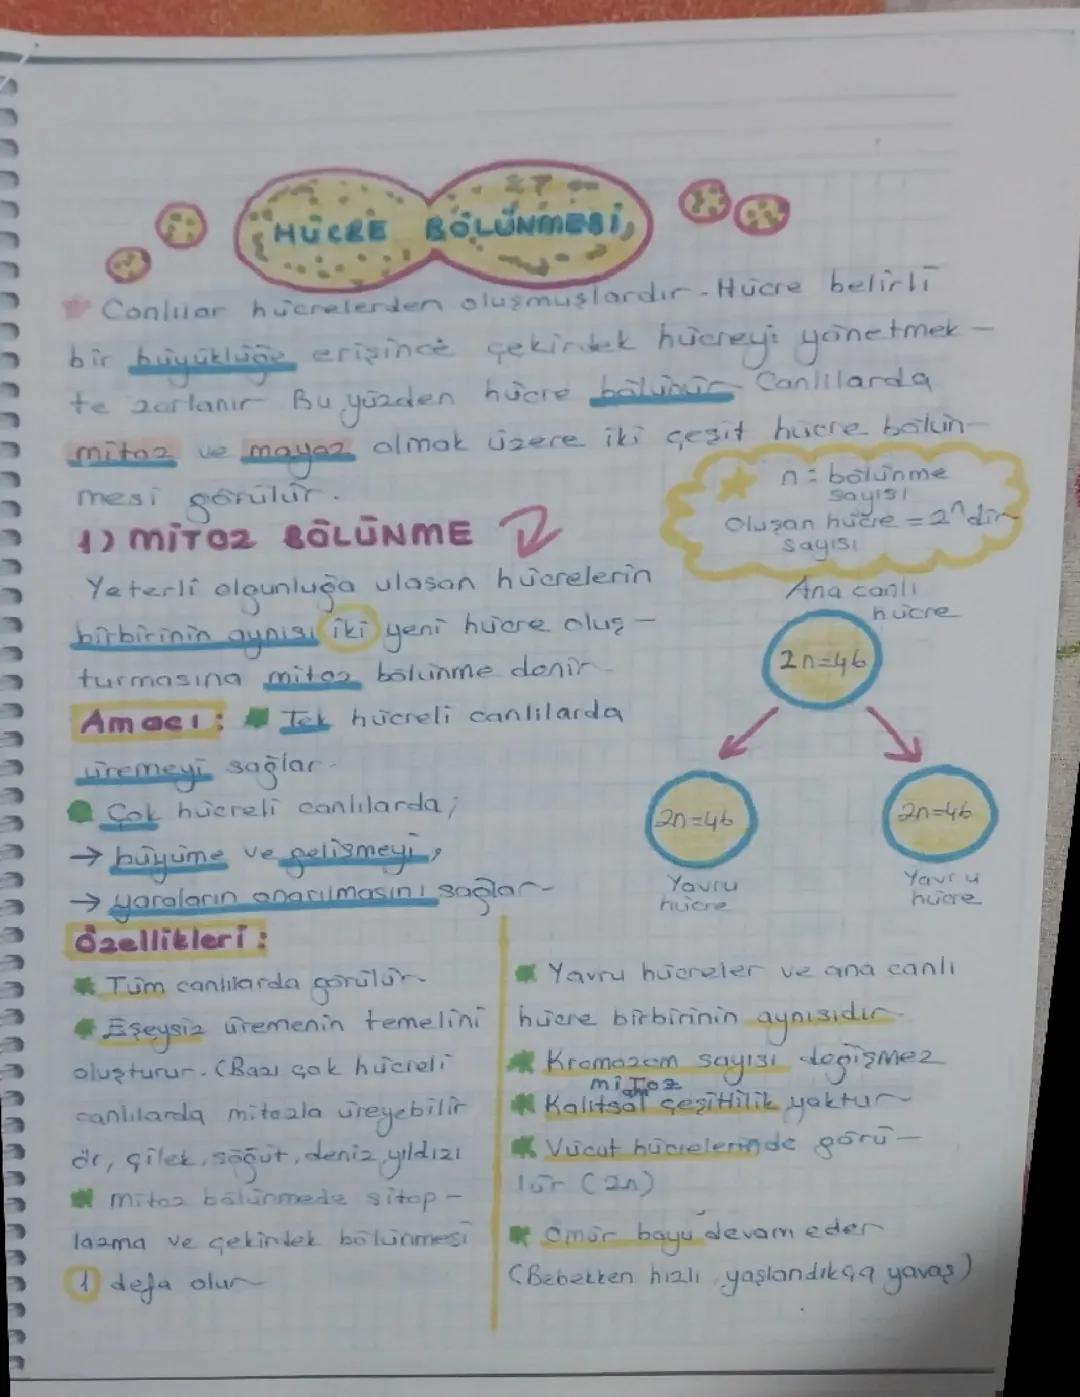 HÜCRE BÖLÜNMESİ
Canlılar hücrelerden oluşmuşlardır. Hücre belirli
bir büyüklüğe erişince çekirdek hücreyi yönetmek-
te zorlanır Bu yüzden hücre bölünür Canlılarda
mitoz ve mayoz olmak üzere iki çeşit hücre bölün-
mesi görülür.
n = bölünme
sayısı
Oluşan hücre = 2ⁿ dir
sayısı
1) MİTOZ BÖLÜNME
Yeterli olgunluğa ulaşan hücrelerin
birbirinin aynısı iki yeni hücre oluş-
turmasına mitoz bölünme denir
Amacı: Tek hücreli canlılarda
üremeyi sağlar.
Çok hücreli canlılarda;
→ büyüme ve gelişmeyi,
→ yaraların onarılmasını sağlar
Ana canlı
hücre
2n=46
2n=46
2n=46
Yavru
hücre
Yavru
hücre
Özellikleri:
Tüm canlılarda görülür
Eşeysiz üremenin temelini
oluşturur. (Bazı çok hücreli
canlılarda mitozla üreyebilir
ör, çilek, söğüt, deniz yıldızı
mitoz bölünmede sitop-
lazma ve çekirdek bölünmesi
1 defa olur
Yavru hücreler ve ana canlı
hücre birbirinin aynısıdır
Kromozom sayısı değişmez
mitoz
Kalıtsal çeşitlilik yoktur
Vücut hücrelerinde görü-
lür (2n)
Ömür boyu devam eder
(Bebekken hızlı yaşlandıkça yavaş)